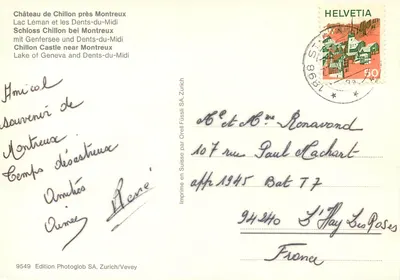 Château de Chillon près Montreux
Lac Léman et les Dents-du-Midi
Schloss Chillon bei Montreux
mit Genfersee und Dents-du-Midi
Chillon Castle near Montreux
Lake of Geneva and Dents-du-Midi
Amical
souvenir de
Montreux.
Temps désastreux
Amitiés
René
9549 Edition Photoglob SA, Zurich/Vevey
Imprimé en Suisse par Orell Füssli SA, Zurich
HELVETIA
60
1898 ST
Me et Mme Renavand
107 rue Paul Machart
appt 1945 Bat T7
94240 L'Hay Les Roses
France